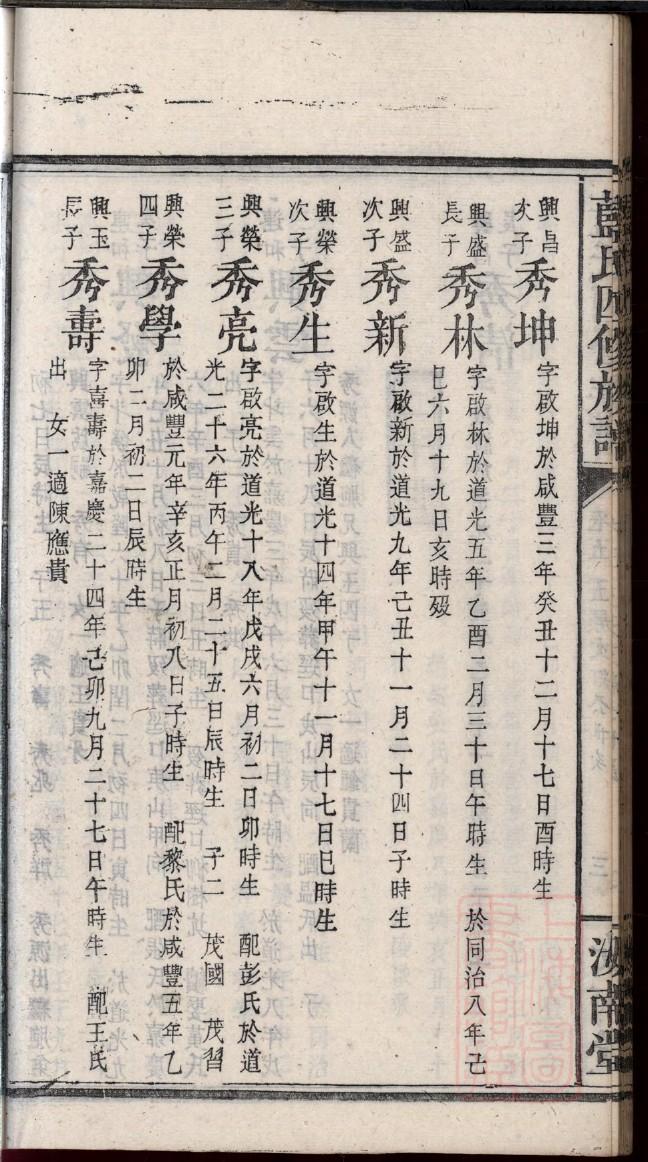 藍氏四修族譜
汝南堂
興昌次子 秀坤 字啟坤於咸豐三年癸丑十二月十七日酉時生
興盛長子 秀林 字啟林於道光五年乙酉二月三十日午時生 於同治八年己
巳六月十九日亥時歿
興盛次子 秀新 字啟新於道光九年己丑十一月二十四日子時生
興榮次子 秀生 字啟生於道光十四年甲午十一月十七日巳時生
興榮三子 秀亮 字啟亮於道光十八年戊戌六月初二日卯時生 配彭氏於道
光二十六年丙午二月二十五日辰時生 子二 茂國 茂習
興榮四子 秀學 於咸豐元年辛亥正月初八日子時生 配黎氏於咸豐五年乙
卯二月初二日辰時生
興玉長子 秀壽 字喜壽於嘉慶二十四年己卯九月二十七日午時生 配王氏
出 女一適陳應貴